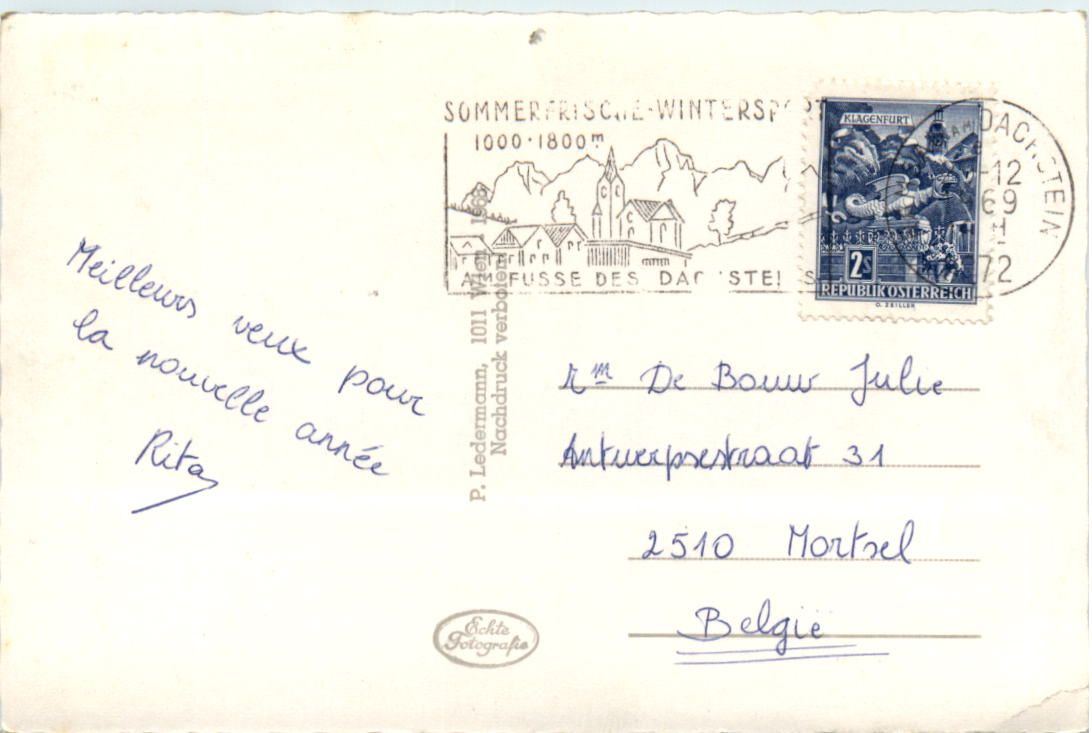 SOMMERFRISCHE-WINTERSPORT
1000-1800m
AM FUSSE DES DACHSTEINS
KLAGENFURT
2S
REPUBLIK ÖSTERREICH
O. ZEILLER
DACHSTEIN
-12
69
72
Meilleurs veux pour
la nouvelle année
Rita
P. Ledermann, 1011 Wien 1968
Nachdruck verboten
De Bouw Julie
Antwerpsestraat 31
2510 Mortsel
België
Echte
Fotografie